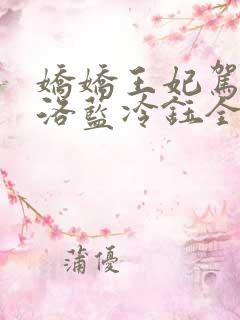 嬌嬌王妃駕
洛藍冷鈺全
蒲優